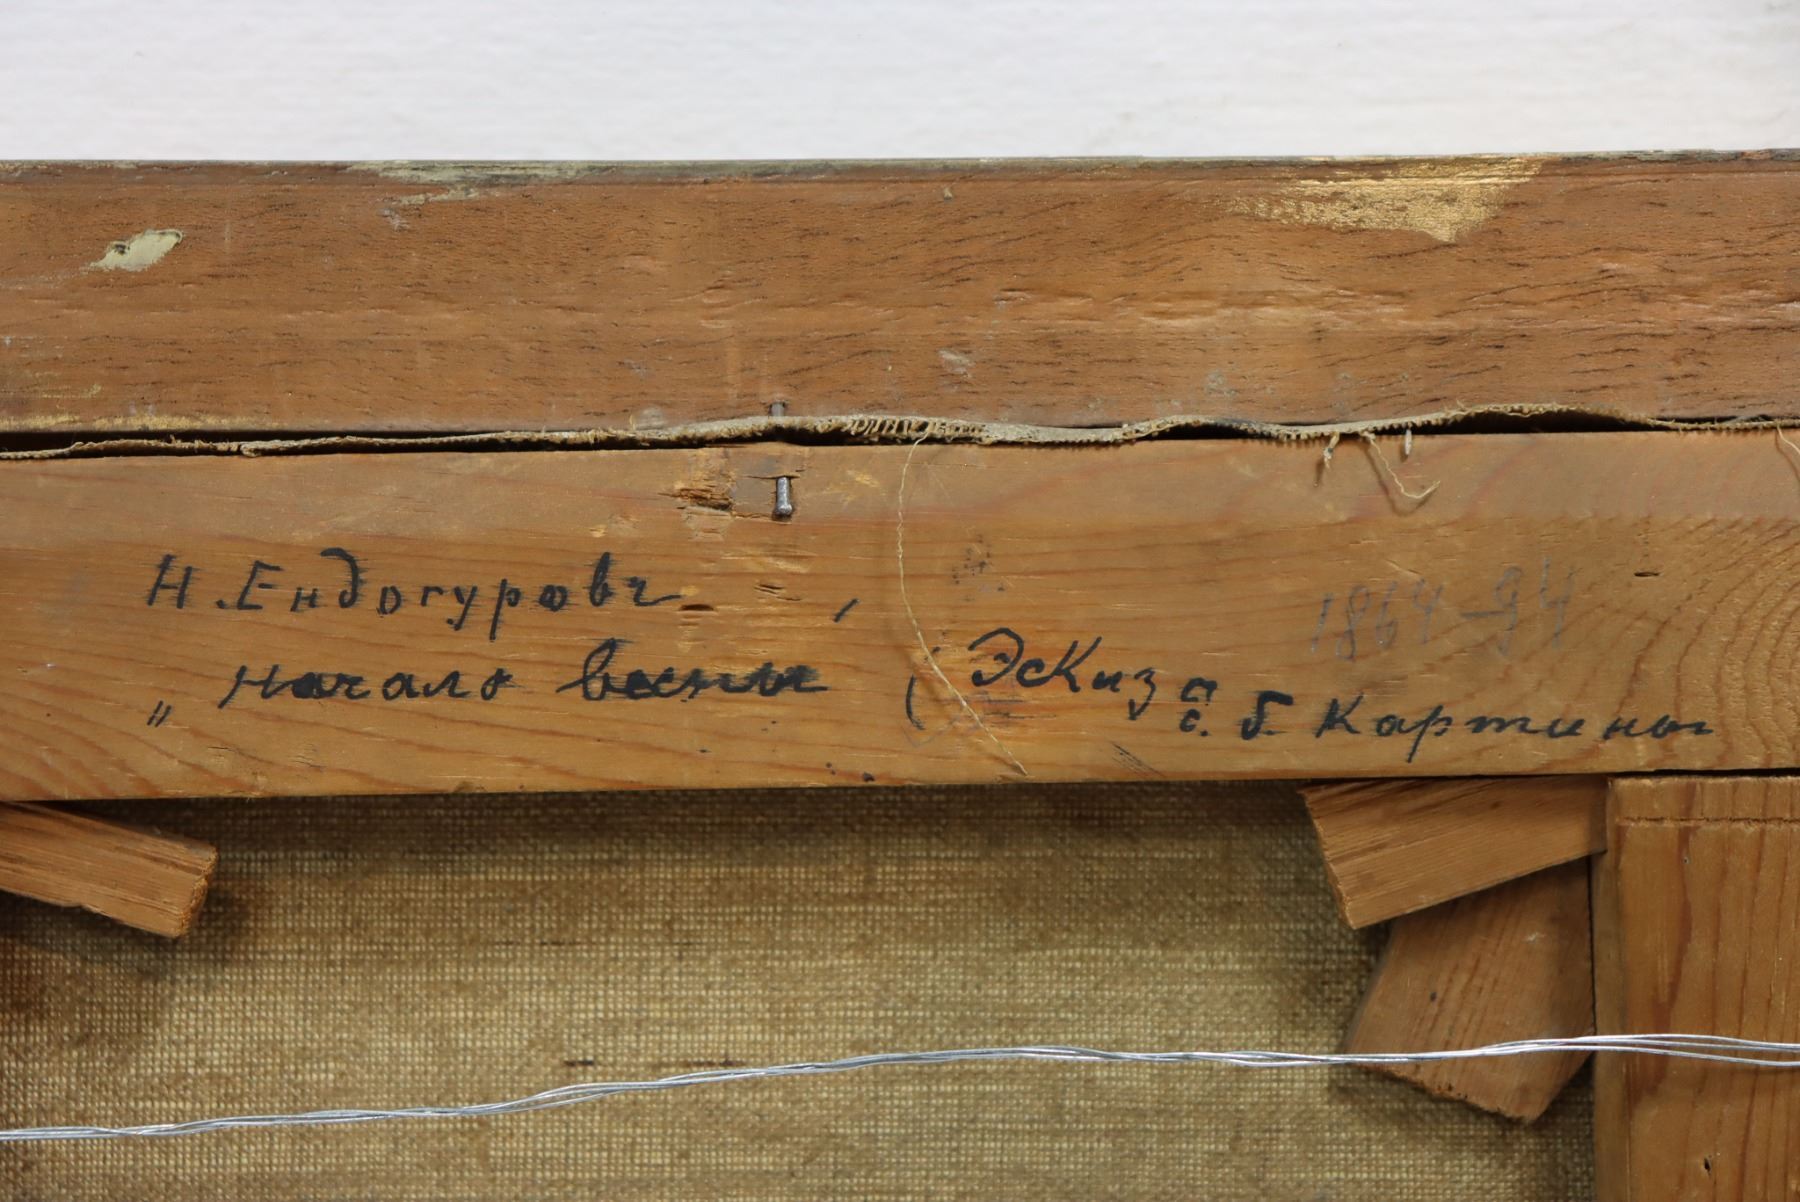 Н. Ендогуровъ,
„ Начало весны (Эскиз с. б. Картины
1864-94